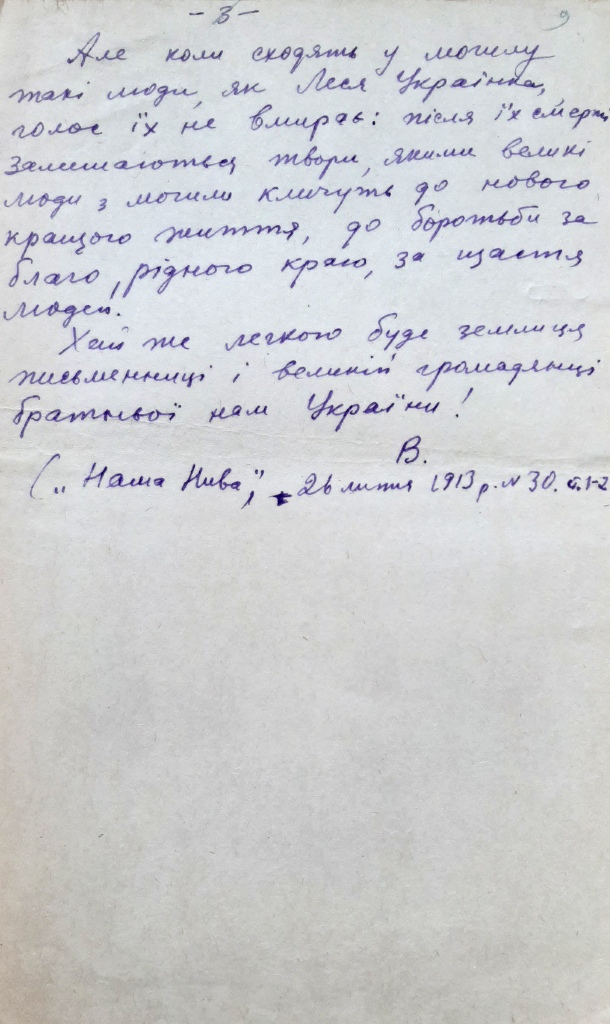 - 3 -
9
Але коли сходять у могилу
такі люди, як Леся Українка,
голос їх не вмирає: після їх смерті
залишаються твори, якими великі
люди з могили кличуть до нового
кращого життя, до боротьби за
благо рідного краю, за щастя
людей.
Хай же легкою буде землиця
письменниці і великій громадянці
братньої нам України!
В.
(„Наша Нива", 26 липня 1913 р. N 30. ст. 1-2